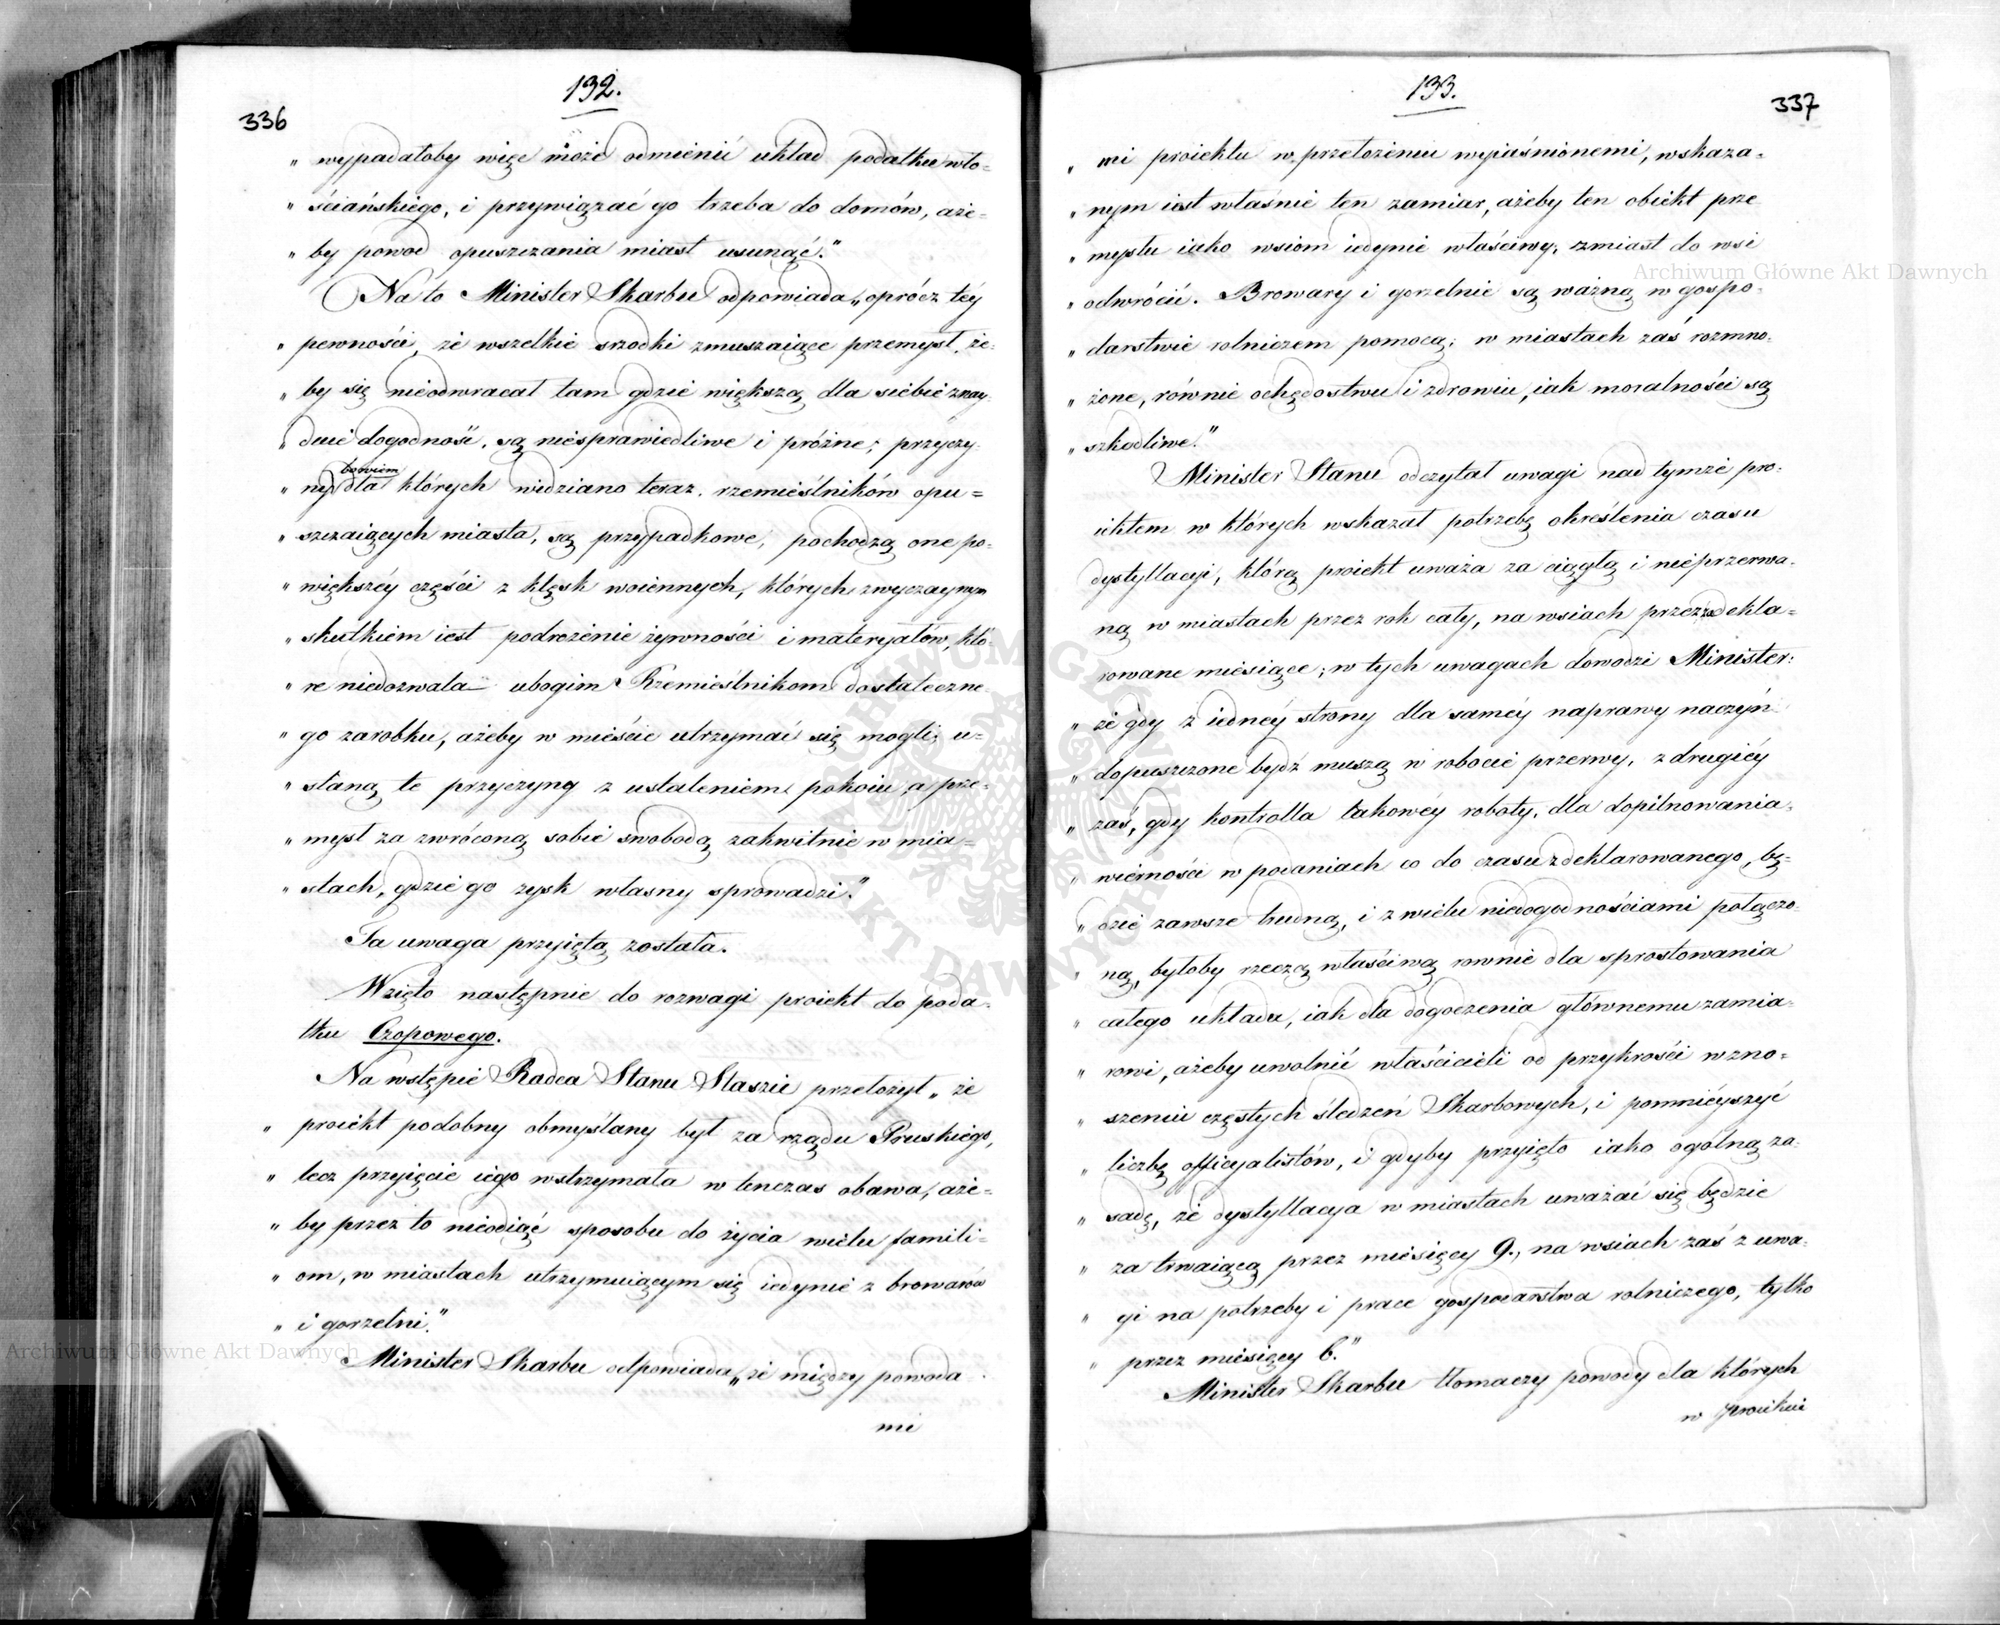 132.
336
„ wypadałoby więc może odmienić układ podatku wło-
„ ściańskiego, i przywiązać go trzeba do domów, aże-
„ by powod opuszczania miast usunąć."
Na to Minister Skarbu odpowiada „oprócz téy
„ pewności, że wszelkie srzodki zmuszaiące przemysł, że-
„ by się nieodwracał tam gdzie większą dla siebie znay-
„ duie dogodność, są niesprawiedliwe i próżne; przyczy-
bowiem
„ ny dla których widziano teraz rzemieślników opu=
„ szczaiących miasta, są przypadkowe, pochodzą one po-
„ większéy części z klęsk woiennych, których zwyczaynym
„ skutkiem iest podrożenie żywności i materyałów, któ-
„ re niedozwala ubogim Rzemieślnikom dostateczne-
„ go zarobku, ażeby w mieście utrzymać się mogli; u-
„ staną te przyczyny z ustaleniem pokoiu a prze-
„ mysł za zwróconą sobie swobodą zakwitnie w mia-
„ stach, gdzie go zysk własny sprowadzi."
Ta uwaga przyiętą została.
Wzięto następnie do rozwagi proiekt do poda-
tku Czopowego.
Na wstępie Radca Stanu Staszic przełożył „ że
„ proiekt podobny obmyślany był za rządu Pruskiego,
„ lecz przyięcie iego wstrzymała w tenczas obawa, aże-
„ by przez to nieodiąć sposobu do życia wielu famili-
„ om, w miastach utrzymuiącym się iedynie z browarów
„ i gorzelni."
Minister Skarbu odpowiada „że między powoda-
mi
133.
337
„ mi proiektu w przełożeniu wyiaśnionemi, wskaza-
„ nym iest właśnie ten zamiar, ażeby ten obiekt prze
„ mysłu iako wsiom iedynie właściwy, z miast do wsi
„ odwrócić. Browary i gorzelnie są ważną w gospo-
„ darstwie rolniczem pomocą; w miastach zaś rozmno-
„ żone, równie ochędostwu i zdrowiu, iak moralności są
„ szkodliwe."
Minister Stanu odczytał uwagi nad tymże pro-
iektem w których wskazał potrzebę określenia czasu
dystyllacyi, którą proiekt uważa za ciągłą i nieprzerwa-
ną w miastach przez rok cały, na wsiach przez zadekla-
rowane miesiące; w tych uwagach dowodzi Minister:
„ że gdy z iednéy strony dla saméy naprawy naczyń
„ dopuszczone bydź muszą w robocie przerwy, z drugiéy
„ zaś, gdy kontrolla takowéy roboty, dla dopilnowania
„ wierności w podaniach co do czasu zdeklarowanego, bę-
„ dzie zawsze trudną, i z wielu niedogodnościami połączo-
„ ną, byłoby rzeczą właściwą rownie dla sprostowania
„ całego układu, iak dla dogodzenia głównemu zamia-
„ rowi, ażeby uwolnić właścicieli od przykrości w zno-
„ szeniu częstych śledzeń Skarbowych, i pomnieyszyć
„ liczbę officyalistów, i gdyby przyięto iako ogólną za-
„ sadę, że dystyllacya w miastach uważać się będzie
„ za trwaiącą przez miesięcy 9., na wsiach zaś z uwa-
„ gi na potrzeby i prace gospodarstwa rolniczego, tylko
„ przez miesięcy 6."
Minister Skarbu tłomaczy powody dla których
w proiekcie
Archiwum Główne Akt Dawnych
Archiwum Główne Akt Dawnych
ARCHIWUM GŁÓWNE AKT DAWNYCH